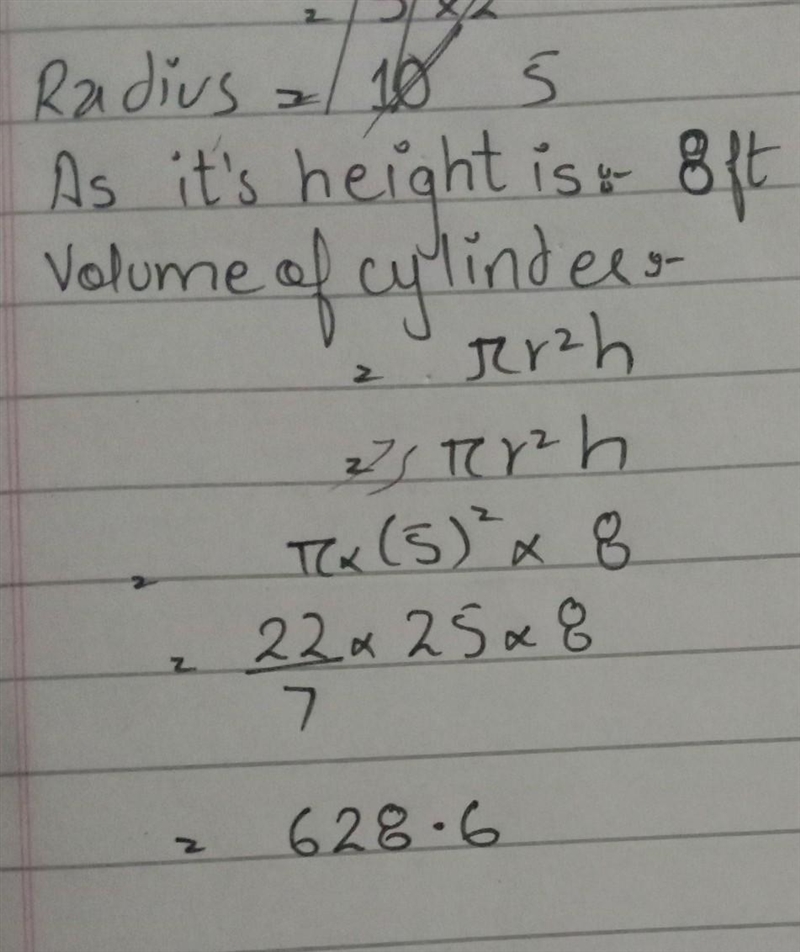 Radius = 5
As it's height is:- 8ft
Volume of cylinder:-
= πr²h
= πr²h
= π×(5)²× 8
= 22/7 × 25 × 8
= 628.6